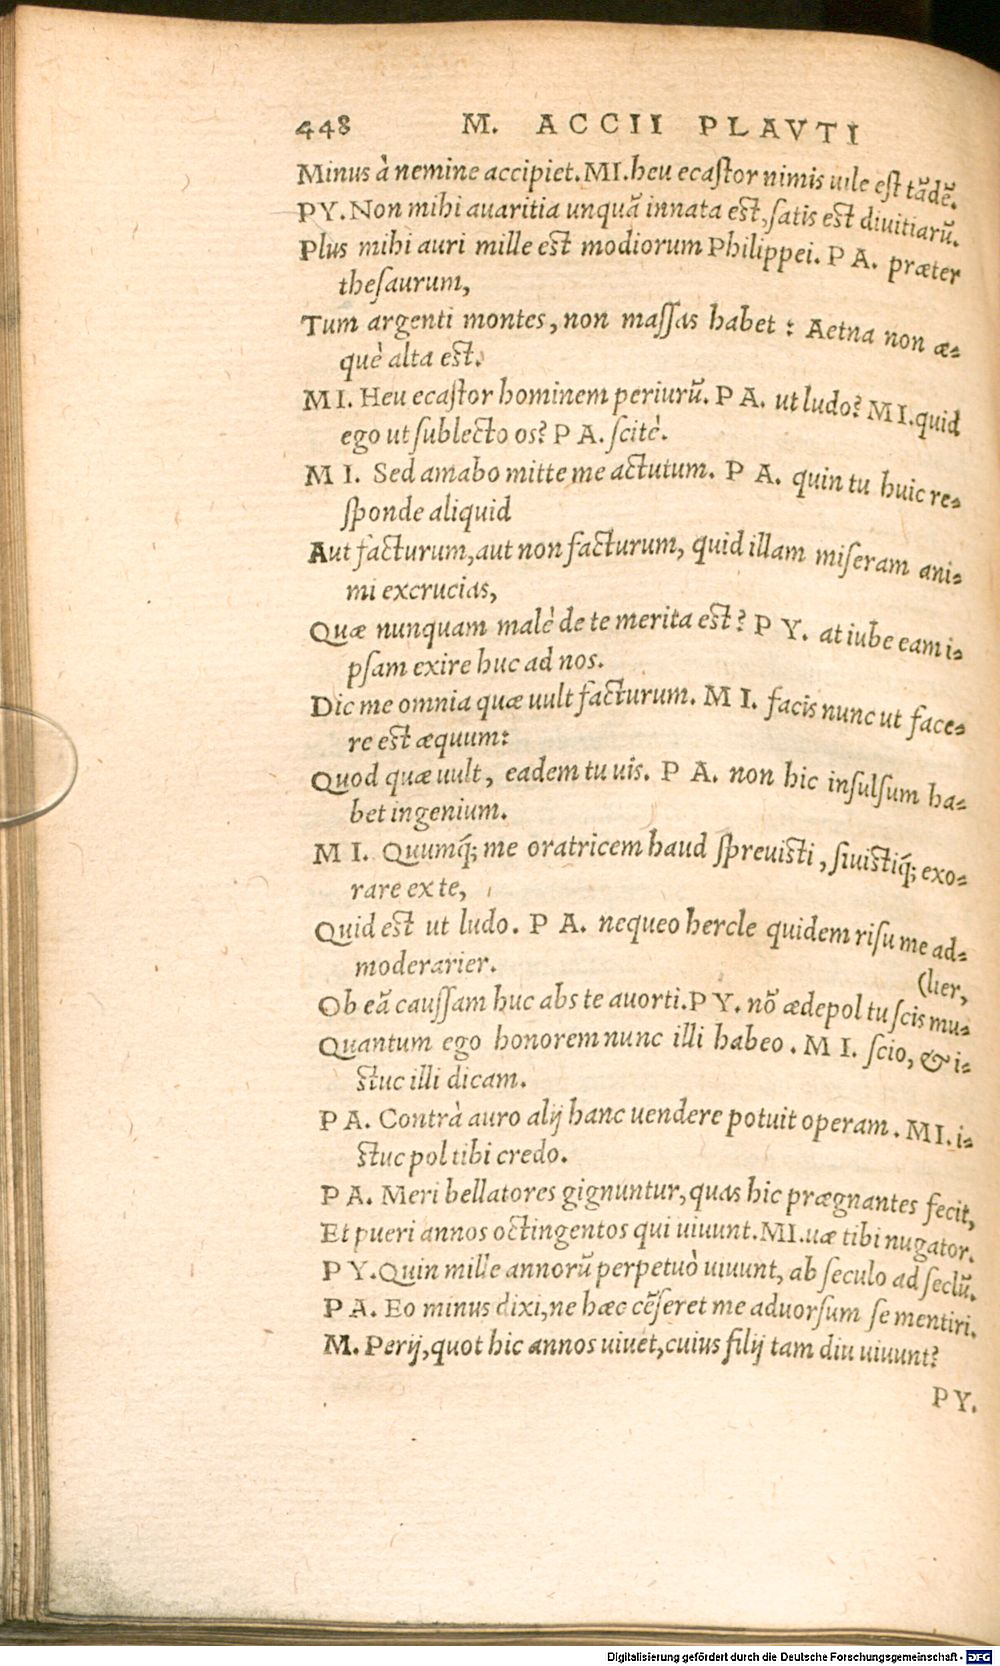 448 M. ACCII PLAVTI
Minus à nemine accipiet. MI. heu ecaſtor nimis uile eſt tādē.
PY. Non mihi auaritia unquā innata eſt, ſatis eſt diuitiarū.
Plus mihi auri mille eſt modiorum Philippei. PA. præter
theſaurum,
Tum argenti montes, non maſſas habet: Aetna non æ-
què alta eſt.
MI. Heu ecaſtor hominem periurū. PA. ut ludo? MI. quid
ego ut ſublecto os? PA. ſcitè.
MI. Sed amabo mitte me actutum. PA. quin tu huic re-
ſponde aliquid
Aut facturum, aut non facturum, quid illam miſeram ani-
mi excrucias,
Quæ nunquam malè de te merita eſt? PY. at iube eam i-
pſam exire huc ad nos.
Dic me omnia quæ uult facturum. MI. facis nunc ut face-
re eſt æquum:
Quod quæ uult, eadem tu uis. PA. non hic inſulſum ha-
bet ingenium.
MI. Quumq́; me oratricem haud ſpreuiſti, ſiuiſtiq́; exo-
rare ex te,
Quid eſt ut ludo. PA. nequeo hercle quidem riſu me ad-
moderarier.
(lier,
Ob eā cauſſam huc abs te auorti. PY. nō ædepol tu ſcis mu-
Quantum ego honorem nunc illi habeo. MI. ſcio, & i-
ſtuc illi dicam.
PA. Contrà auro alij hanc uendere potuit operam. MI. i-
ſtuc pol tibi credo.
PA. Meri bellatores gignuntur, quas hic prægnantes fecit,
Et pueri annos octingentos qui uiuunt. MI. uæ tibi nugator.
PY. Quin mille annorū perpetuò uiuunt, ab ſeculo ad ſeclū.
PA. Eo minus dixi, ne hæc cēſeret me aduorſum ſe mentiri.
M. Perij, quot hic annos uiuet, cuius filij tam diu uiuunt?
PY.
Digitalisierung gefördert durch die Deutsche Forschungsgemeinschaft - DFG